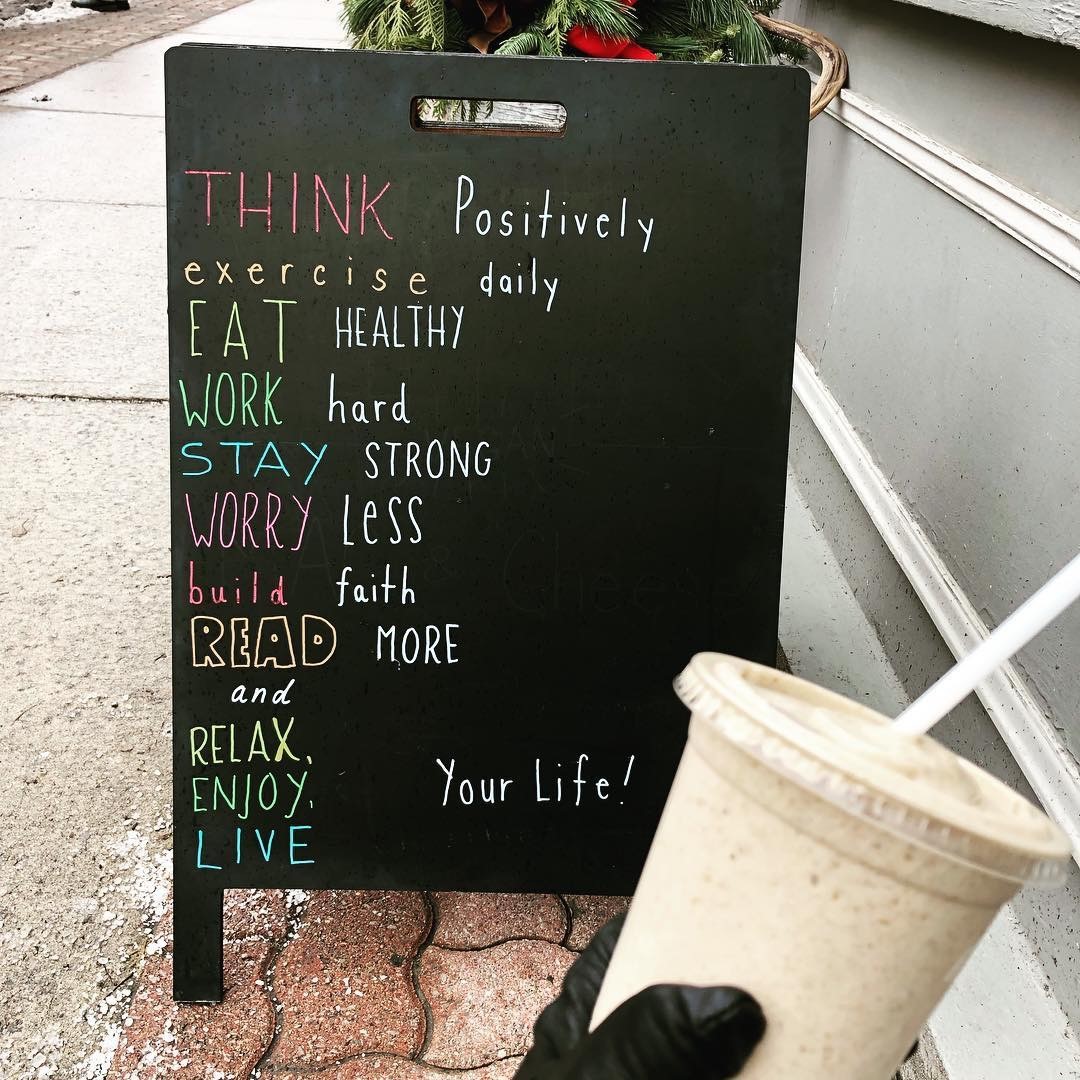 THINK Positively
exercise daily
EAT HEALTHY
WORK hard
STAY STRONG
WORRY LeSS
build faith
READ MORE
and
RELAX,
ENJOY, Your Life!
LIVE